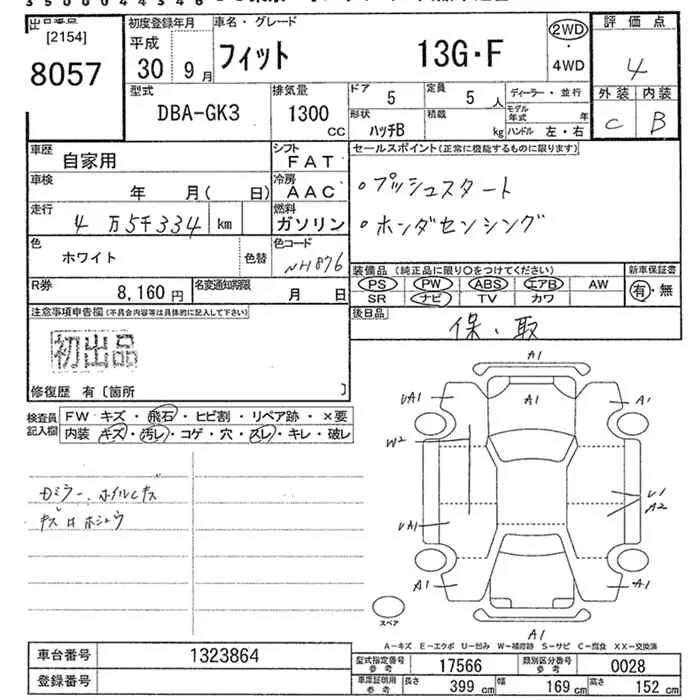 出品番号 [2154] 8057
初度登録年月 平成 30 年 9 月
車名・グレード フィット 13G・F
2WD・4WD
評価点 4
型式 DBA-GK3
排気量 1300 CC
ドア 5
定員 5 人
形状 ハッチB
積載 kg
ディーラー・並行
モデル年式 年
ハンドル 左・右
外装 C 内装 B
車歴 自家用
シフト FAT
車検 年 月( 日)
冷房 AAC
走行 4万5千334 km
燃料 ガソリン
色 ホワイト 色替
色コード NH876
R券 8,160 円
名変通知期限 月 日
セールスポイント(正常に機能するものに限ります)
・プッシュスタート
・ホンダセンシング
装備品 (純正品に限り○をつけてください)
PS PW ABS エアB AW
SR ナビ TV カワ
新車保証書 有・無
後日品 保、取
注意事項申告欄(不具合内容等は具体的に記入して下さい)
初出品
修復歴 有〔箇所 〕
検査員記入欄
FW キズ・飛石・ヒビ割・リペア跡・×要
内装 キズ・汚レ・コゲ・穴・スレ・キレ・破レ
カドミラー、ホイルキズ
A1
UA1 A1 A1
W2
U1
A2
UA1
A1 A1
A1
スペア
A−キズ E−エクボ U−凹み W−補修跡 S−サビ C−腐食 XX−交換済
車台番号 1323864
登録番号
型式指定番号 参考 17566
類別区分番号 参考 0028
車庫証明用 参考 長さ 399 cm 幅 169 cm 高さ 152 cm